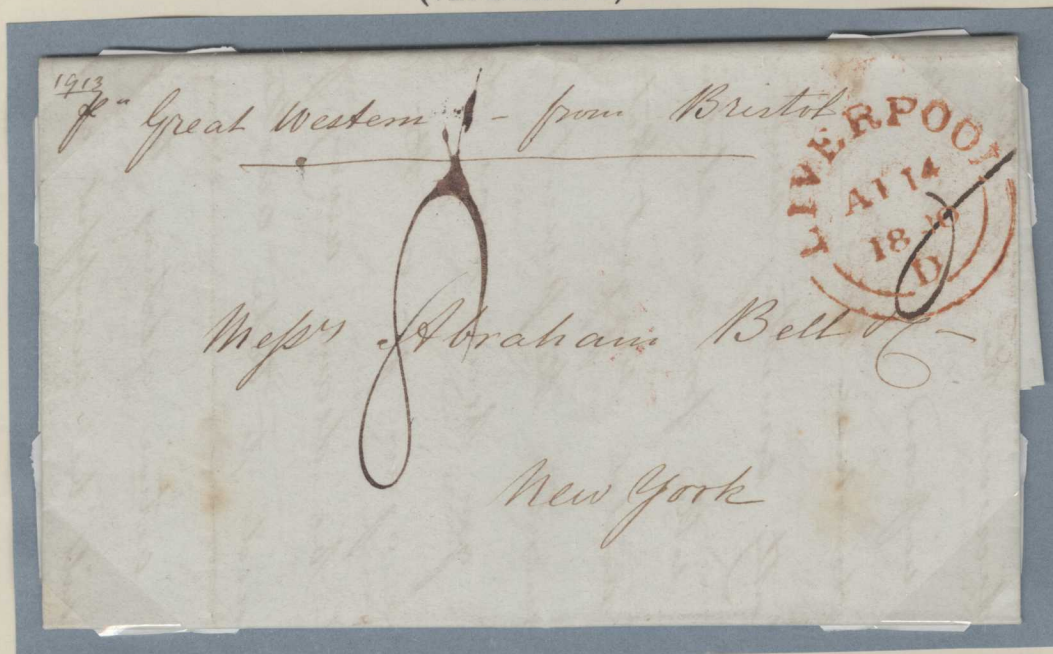 1913
pr Great Western - from Bristol
LIVERPOOL
AU 14
18
D
8
Messrs Abraham Bell & Co
New York